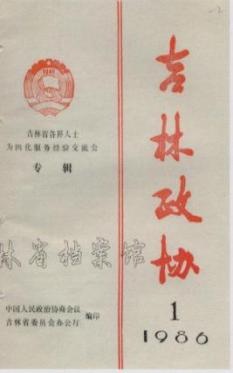 吉林省各界人士
为四化服务经验交流会
专辑
吉林政协
1
1986
林省档案馆
中国人民政治协商会议
吉林省委员会办公厅
编印